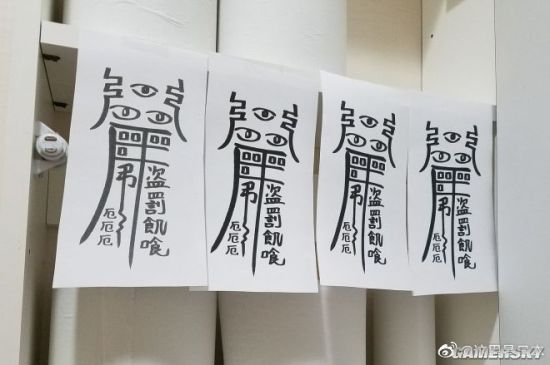 盗罰飢喰
弔
厄厄厄
盗罰飢喰
弔
厄厄厄
盗罰飢喰
弔
厄厄厄
盗罰飢喰
弔
厄厄厄
GAMERSKY